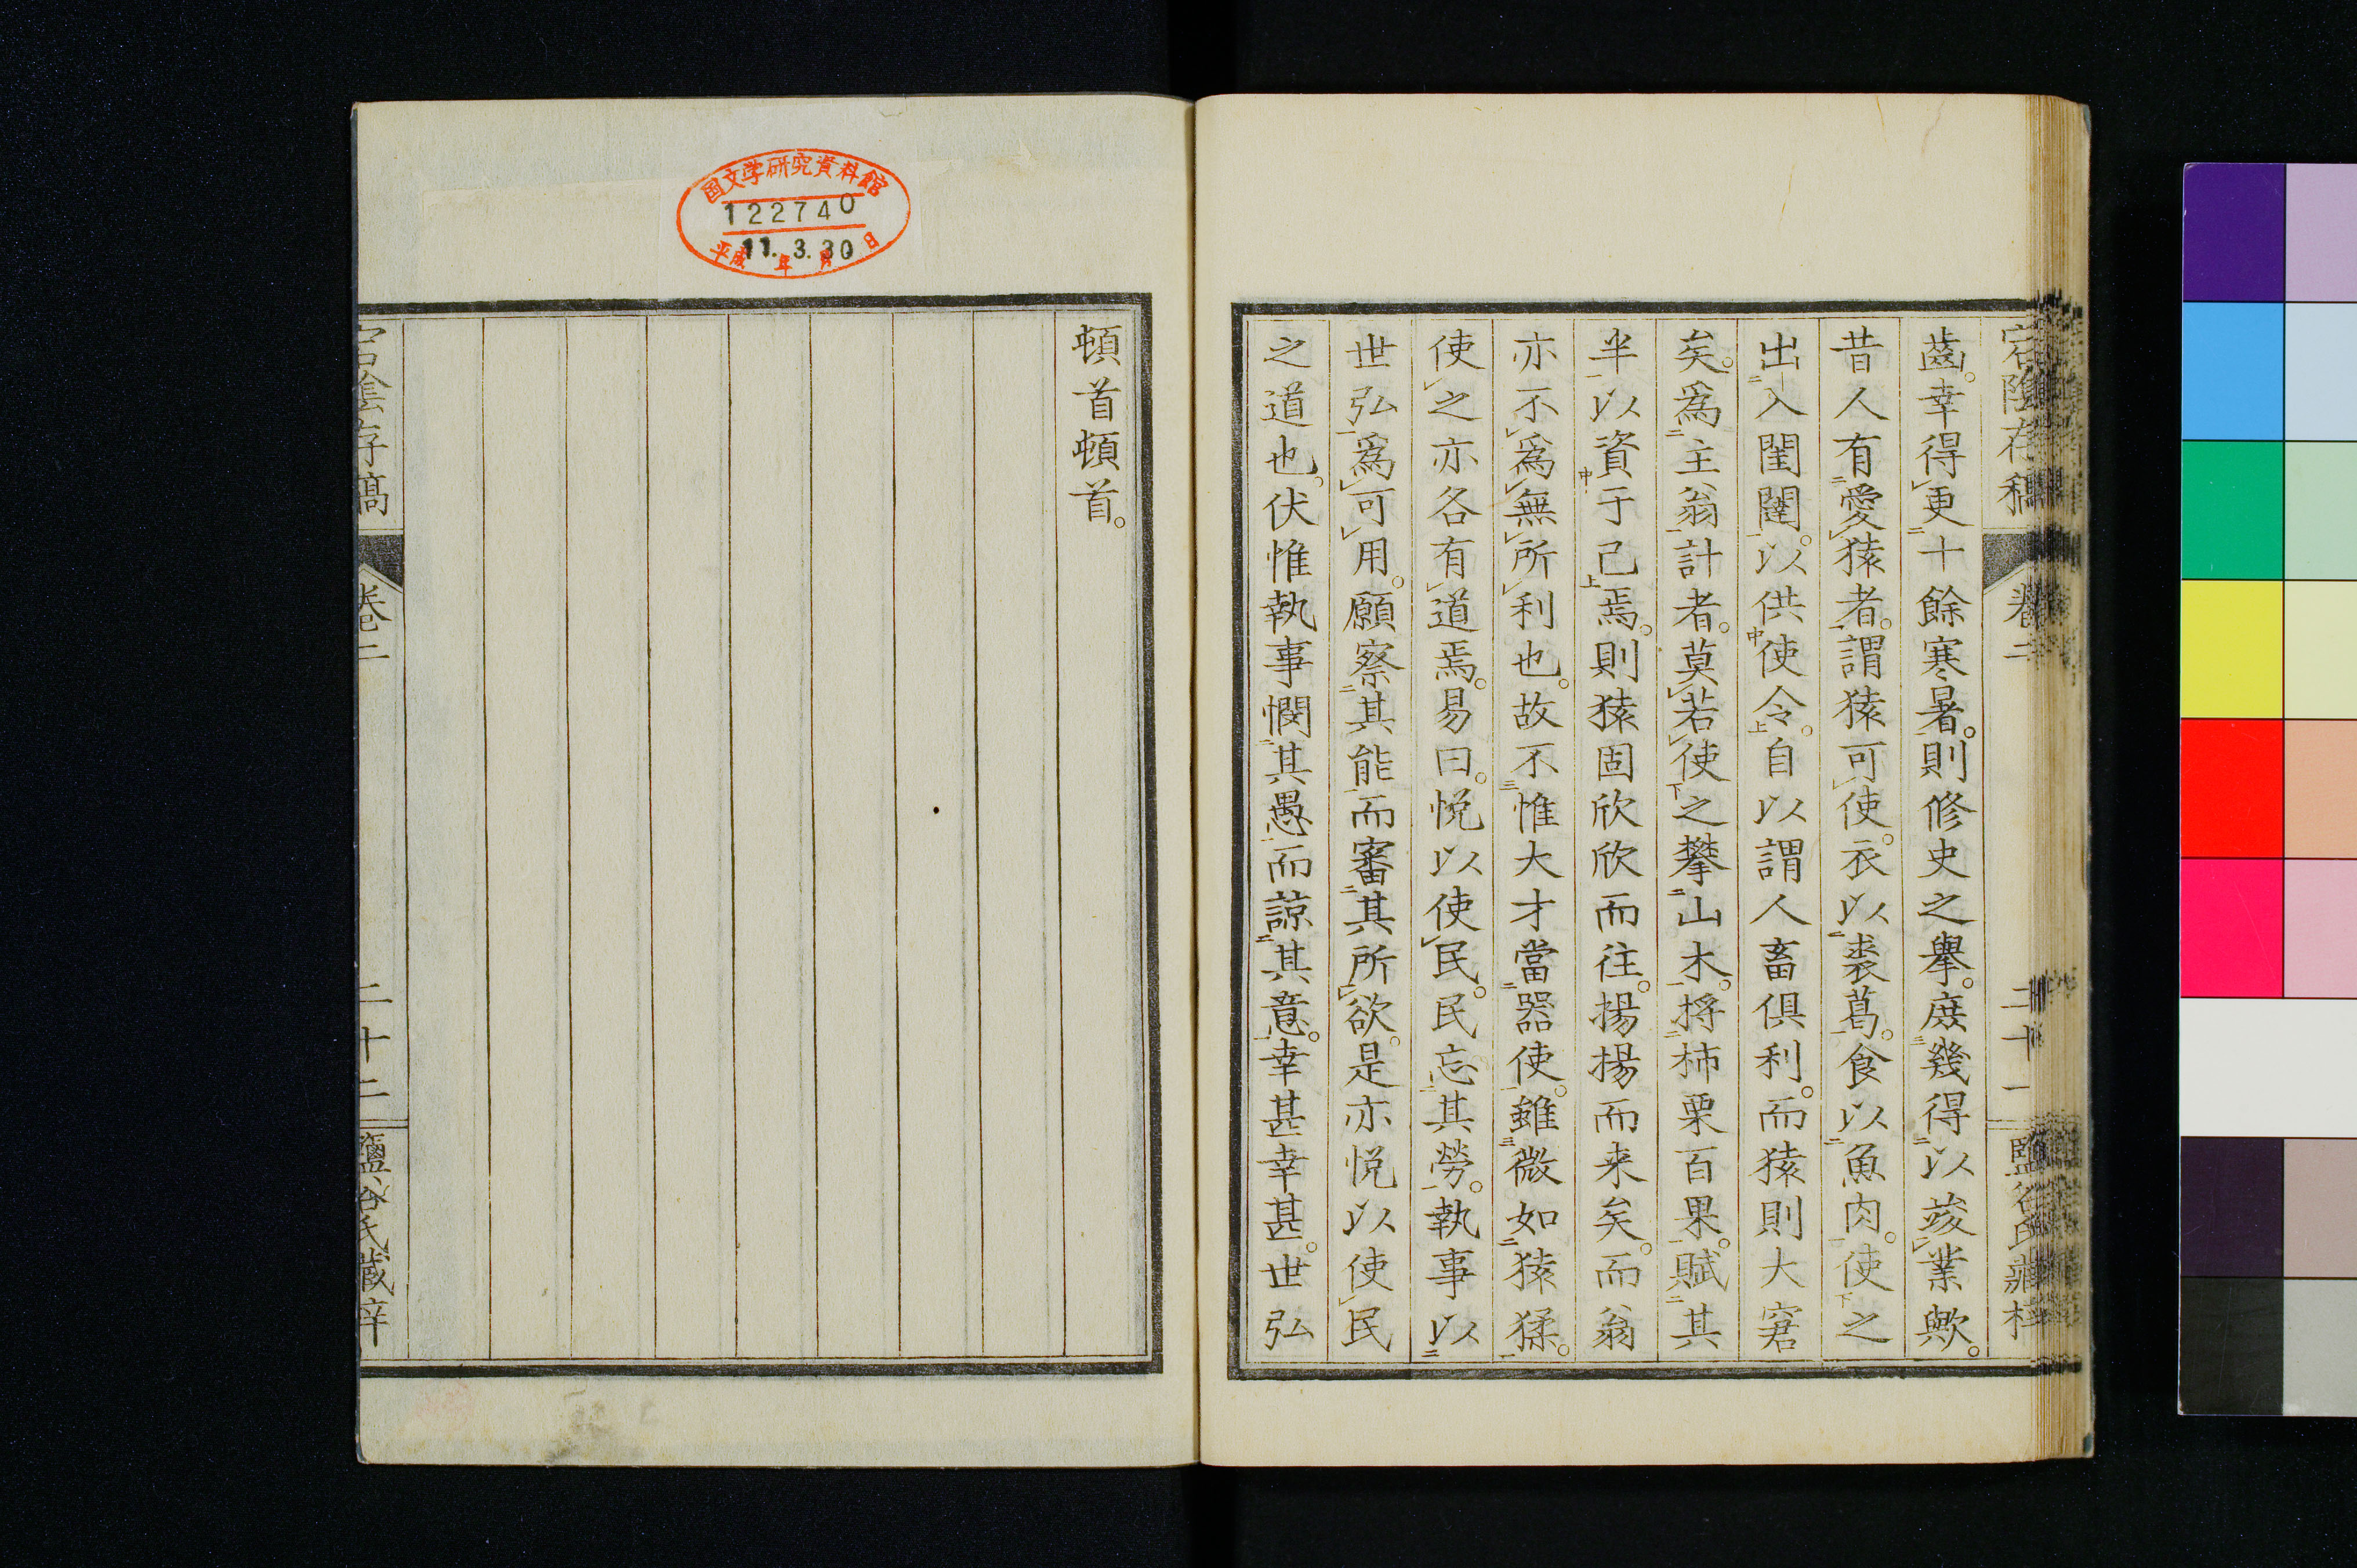 宕陰存稿
卷二
二十一
鹽谷氏藏梓
齒。幸得更十餘寒暑。則修史之擧。庶幾得以竣業歟。
昔人有愛猿者。謂猿可使。衣以裘葛。食以魚肉。使之
出入閨闥。以供使令。自以謂人畜俱利。而猿則大窘
矣。爲主翁計者。莫若使之攀山木。捋柿栗百果。賦其
半以資于己焉。則猿固欣欣而往。揚揚而来矣。而翁
亦不爲無所利也。故不惟大才當器使。雖微如猿猱。
使之亦各有道焉。易曰。悅以使民。民忘其勞。執事以
世弘爲可用。願察其能而審其所欲。是亦悅以使民
之道也。伏惟執事憫其愚而諒其意。幸甚幸甚。世弘
国文学研究資料館
122740
平成11年3.月30日
頓首頓首。
宕陰存稿
卷二
二十二
鹽谷氏藏梓